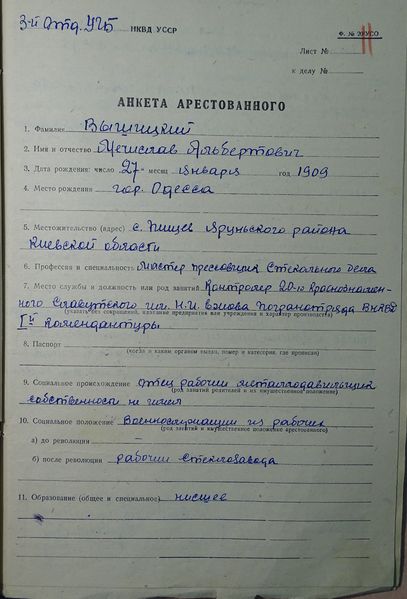 3-й Отд. УГБ НКВД УССР
Ф. № 20 УСО
11
Лист №
к делу №
АНКЕТА АРЕСТОВАННОГО
1. Фамилия Вышицкий
2. Имя и отчество Мечислав Альбертович
3. Дата рождения: число 27 месяц января год 1909
4. Место рождения гор. Одесса
5. Местожительство (адрес) с. Пищев Яруньского района
Киевской области
6. Профессия и специальность Мастер прессовщик Стекольного дела
7. Место службы и должность или род занятий Контролер 20-го Краснознамен-
ного Славутского им. Н.И. Ежова Погранотряда ВНКВД
(указать без сокращений, название предприятия или учреждения и характер производства)
Iй комендатуры
8. Паспорт
(когда и каким органом выдан, номер и категория, где прописан)
9. Социальное происхождение отец рабочий металлодавильщик
(род занятий родителей и их имущественное положение)
собственности не имел
10. Социальное положение Военнослужащий из рабочих
(род занятий и имущественное положение арестованного)
а) до революции
б) после революции рабочий стеклозавода
11. Образование (общее и специальное) нисшее